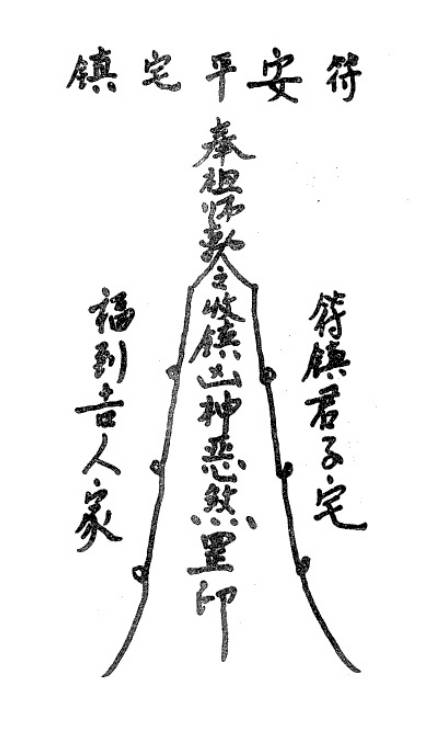 鎮宅平安符
奉祖師敕令收鎮凶神惡煞罡印
符鎮君子宅
福到吉人家